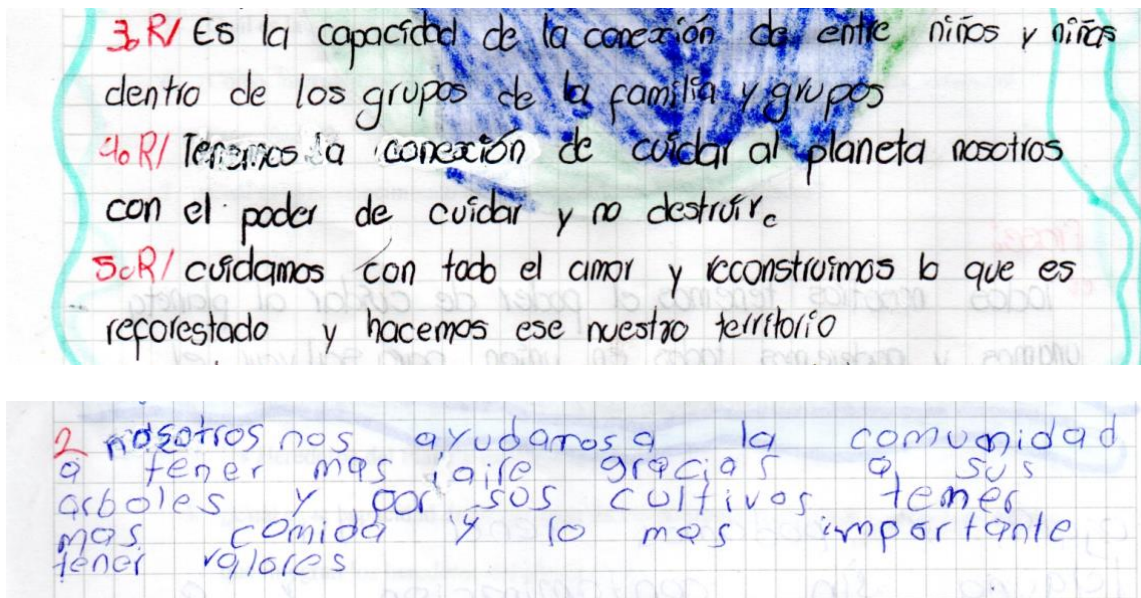 3. R/ Es la capacidad de la conexión de entre niños y niñas
dentro de los grupos de la familia y grupos
4o R/ Tenemos la conexión de cuidar al planeta nosotros
con el poder de cuidar y no destruir.
5. R/ cuidamos con todo el amor y reconstruimos lo que es
reforestado y hacemos ese nuestro territorio
2 nosotros nos ayudamos a la comunidad
a tener mas aire gracias a sus
arboles y por sus cultivos temer
mas comida y lo mas importante
tener valores